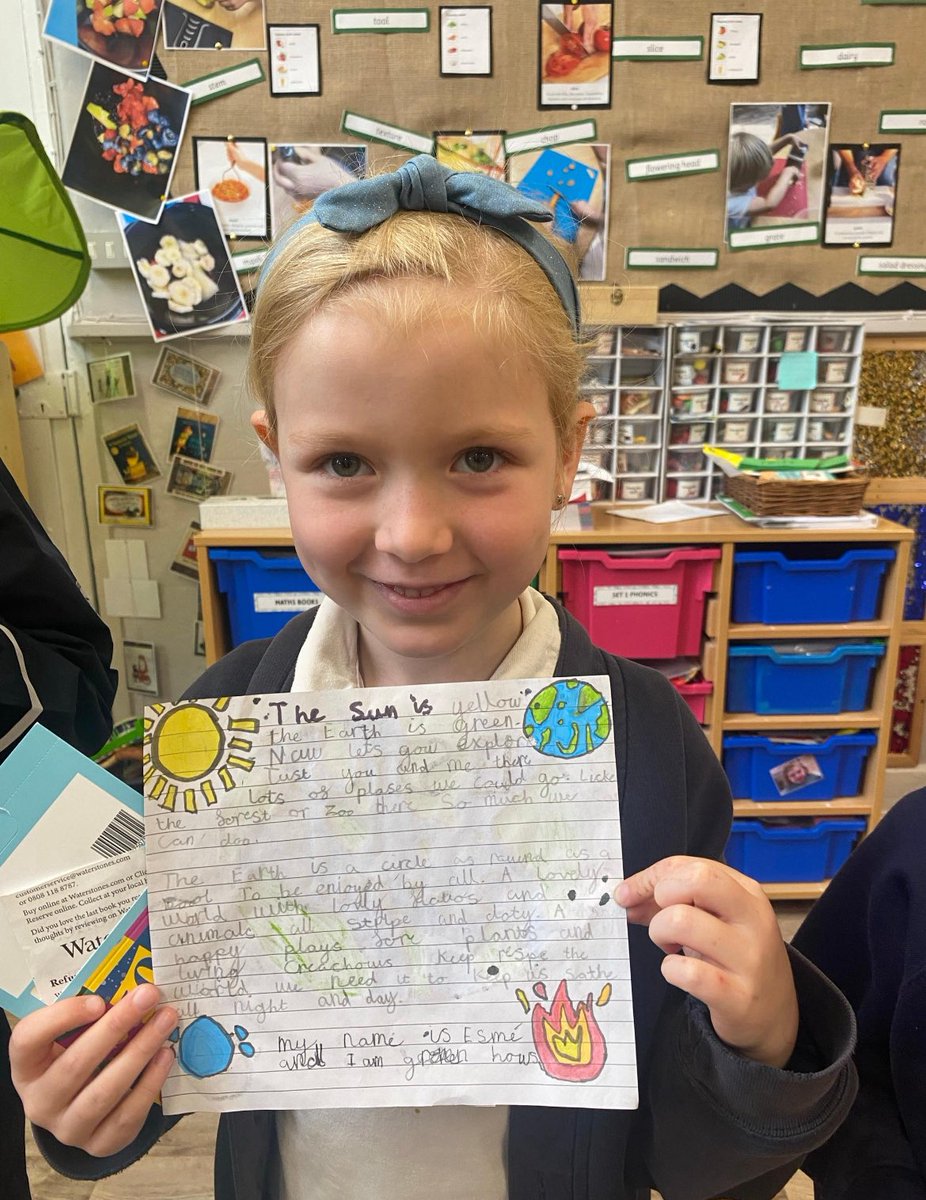 tool
slice
dairy
stem
texture
chop
flowering head
grate
sandwich
salad dressing
MATHS BOOKS
SET 1 PHONICS
The Sun is yellow
the Earth is green.
Now lets gow explor
Just you and me there
lots of plases we could go. Licke
the forest or Zoo there so much we
Can doo.
The Earth is a circle as round as a
To be enjoyed by all. A lovely
world with lovly and
animals all stripe and doty. A
happy plays fore plants and
living Creachows. Keep respe the
world we need it to Keep us sathe
all night and day.
my name is Esmé
and I am hows
customerservice@waterstones.com or
or 0808 118 8787.
Buy online at Waterstones.com or Clic
Reserve online. Collect at your local
Did you love the last book you rea
thoughts by reviewing on Water
Refu